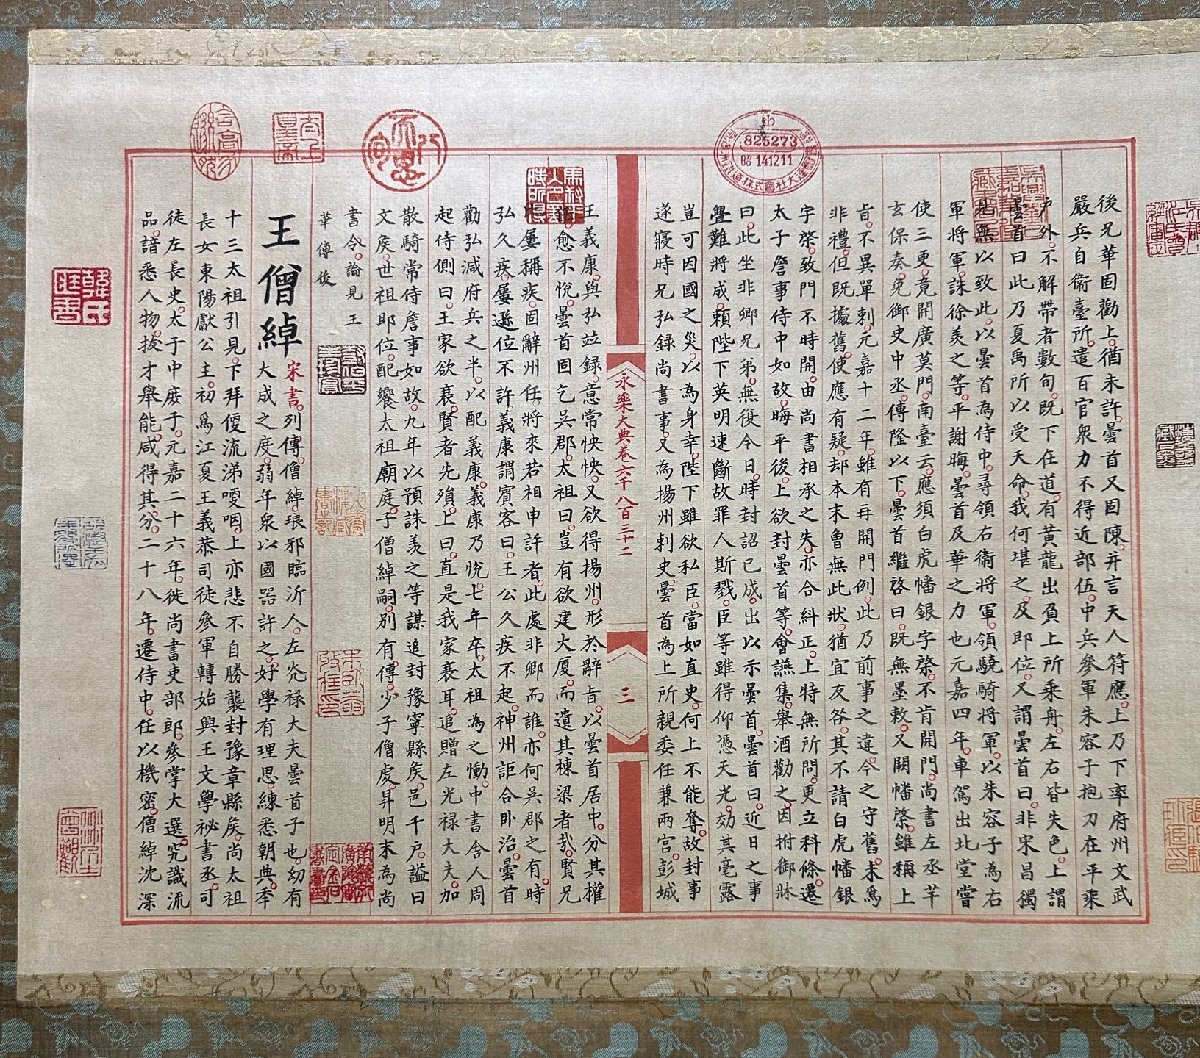 後兄華固勸上猶未許曇首又固陳并言天人符應上乃下率府州文武
嚴兵自衛臺所遣百官衆力不得近部伍中兵參軍朱容子抱刀在平乘
户外不解帶者數旬既下在道有黃龍出負上所乘舟左右皆失色上謂
曇首曰此乃夏禹所以受天命我何堪之及即位又謂曇首曰非宋昌獨
見無以致此以曇首為侍中尋領右衛將軍領驍騎將軍以朱容子為右
軍將軍誅徐羨之等平謝晦曇首及華之力也元嘉四年車駕出北堂嘗
使三更竟開廣莫門南臺云應須白虎幡銀字棨不肯開門尚書左丞羊
玄保奏免御史中丞傅隆以下曇首繼啓曰既無墨敕又闕幡棨雖稱上
旨不異單刺元嘉十二年雖有再開門例此乃前事之違今之守舊未為
非禮但既據舊使應有疑却本末曾無此狀猶宜反咎其不請白虎幡銀
字棨致門不時開由尚書相承之失亦合糾正上特無所問更立科條遷
太子詹事侍中如故晦平後上欲封曇首等會讌集舉酒勸之因拊御牀
曰此坐非卿兄弟無復今日時封詔已成出以示曇首曇首曰近日之事
釁難將成賴陛下英明速斷故罪人斯戮臣等雖得仰憑天光効其毫露
豈可因國之災以為身幸陛下雖欲私臣當如直史何上不能奪故封事
遂寢時兄弘録尚書事又為揚州刺史曇首為上所親委任兼兩宫彭城
永樂大典卷六千八百三十二
三
王義康與弘竝録意常怏怏又欲得揚州形於辭旨以曇首居中分其權
愈不悦曇首固乞吳郡太祖曰豈有欲建大厦而遺其棟梁者哉賢兄
屢稱疾固辭州任將來若相申許者此處非卿而誰亦何吳郡之有時
弘久疾屢遜位不許義康謂賓客曰王公久疾不起神州詎合卧治曇首
勸弘減府兵之半以配義康義康乃悦七年卒太祖為之慟中書舍人周
起侍側曰王家欲衰賢者先殞上曰直是我家衰耳追贈左光禄大夫加
散騎常侍詹事如故九年以預誅羨之等謀追封豫寧縣矦邑千户謚曰
文矦世祖即位配饗太祖廟庭子僧綽嗣別有傳少子僧虔昇明末為尚
書令論見王
華傳後
王僧綽
宋書列傳僧綽琅邪臨沂人左光禄大夫曇首子也幼有
大成之度弱年衆以國器許之好學有理思練悉朝典年
十三太祖引見下拜便流涕哽咽上亦悲不自勝襲封豫章縣矦尚太祖
長女東陽獻公主初爲江夏王義恭司徒參軍轉始興王文學祕書丞司
徒左長史太子中庶子元嘉二十六年徙尚書吏部郎參掌大選究識流
品諳悉人物拔才舉能咸得其分二十八年遷侍中任以機密僧綽沈深
825273
08 141211